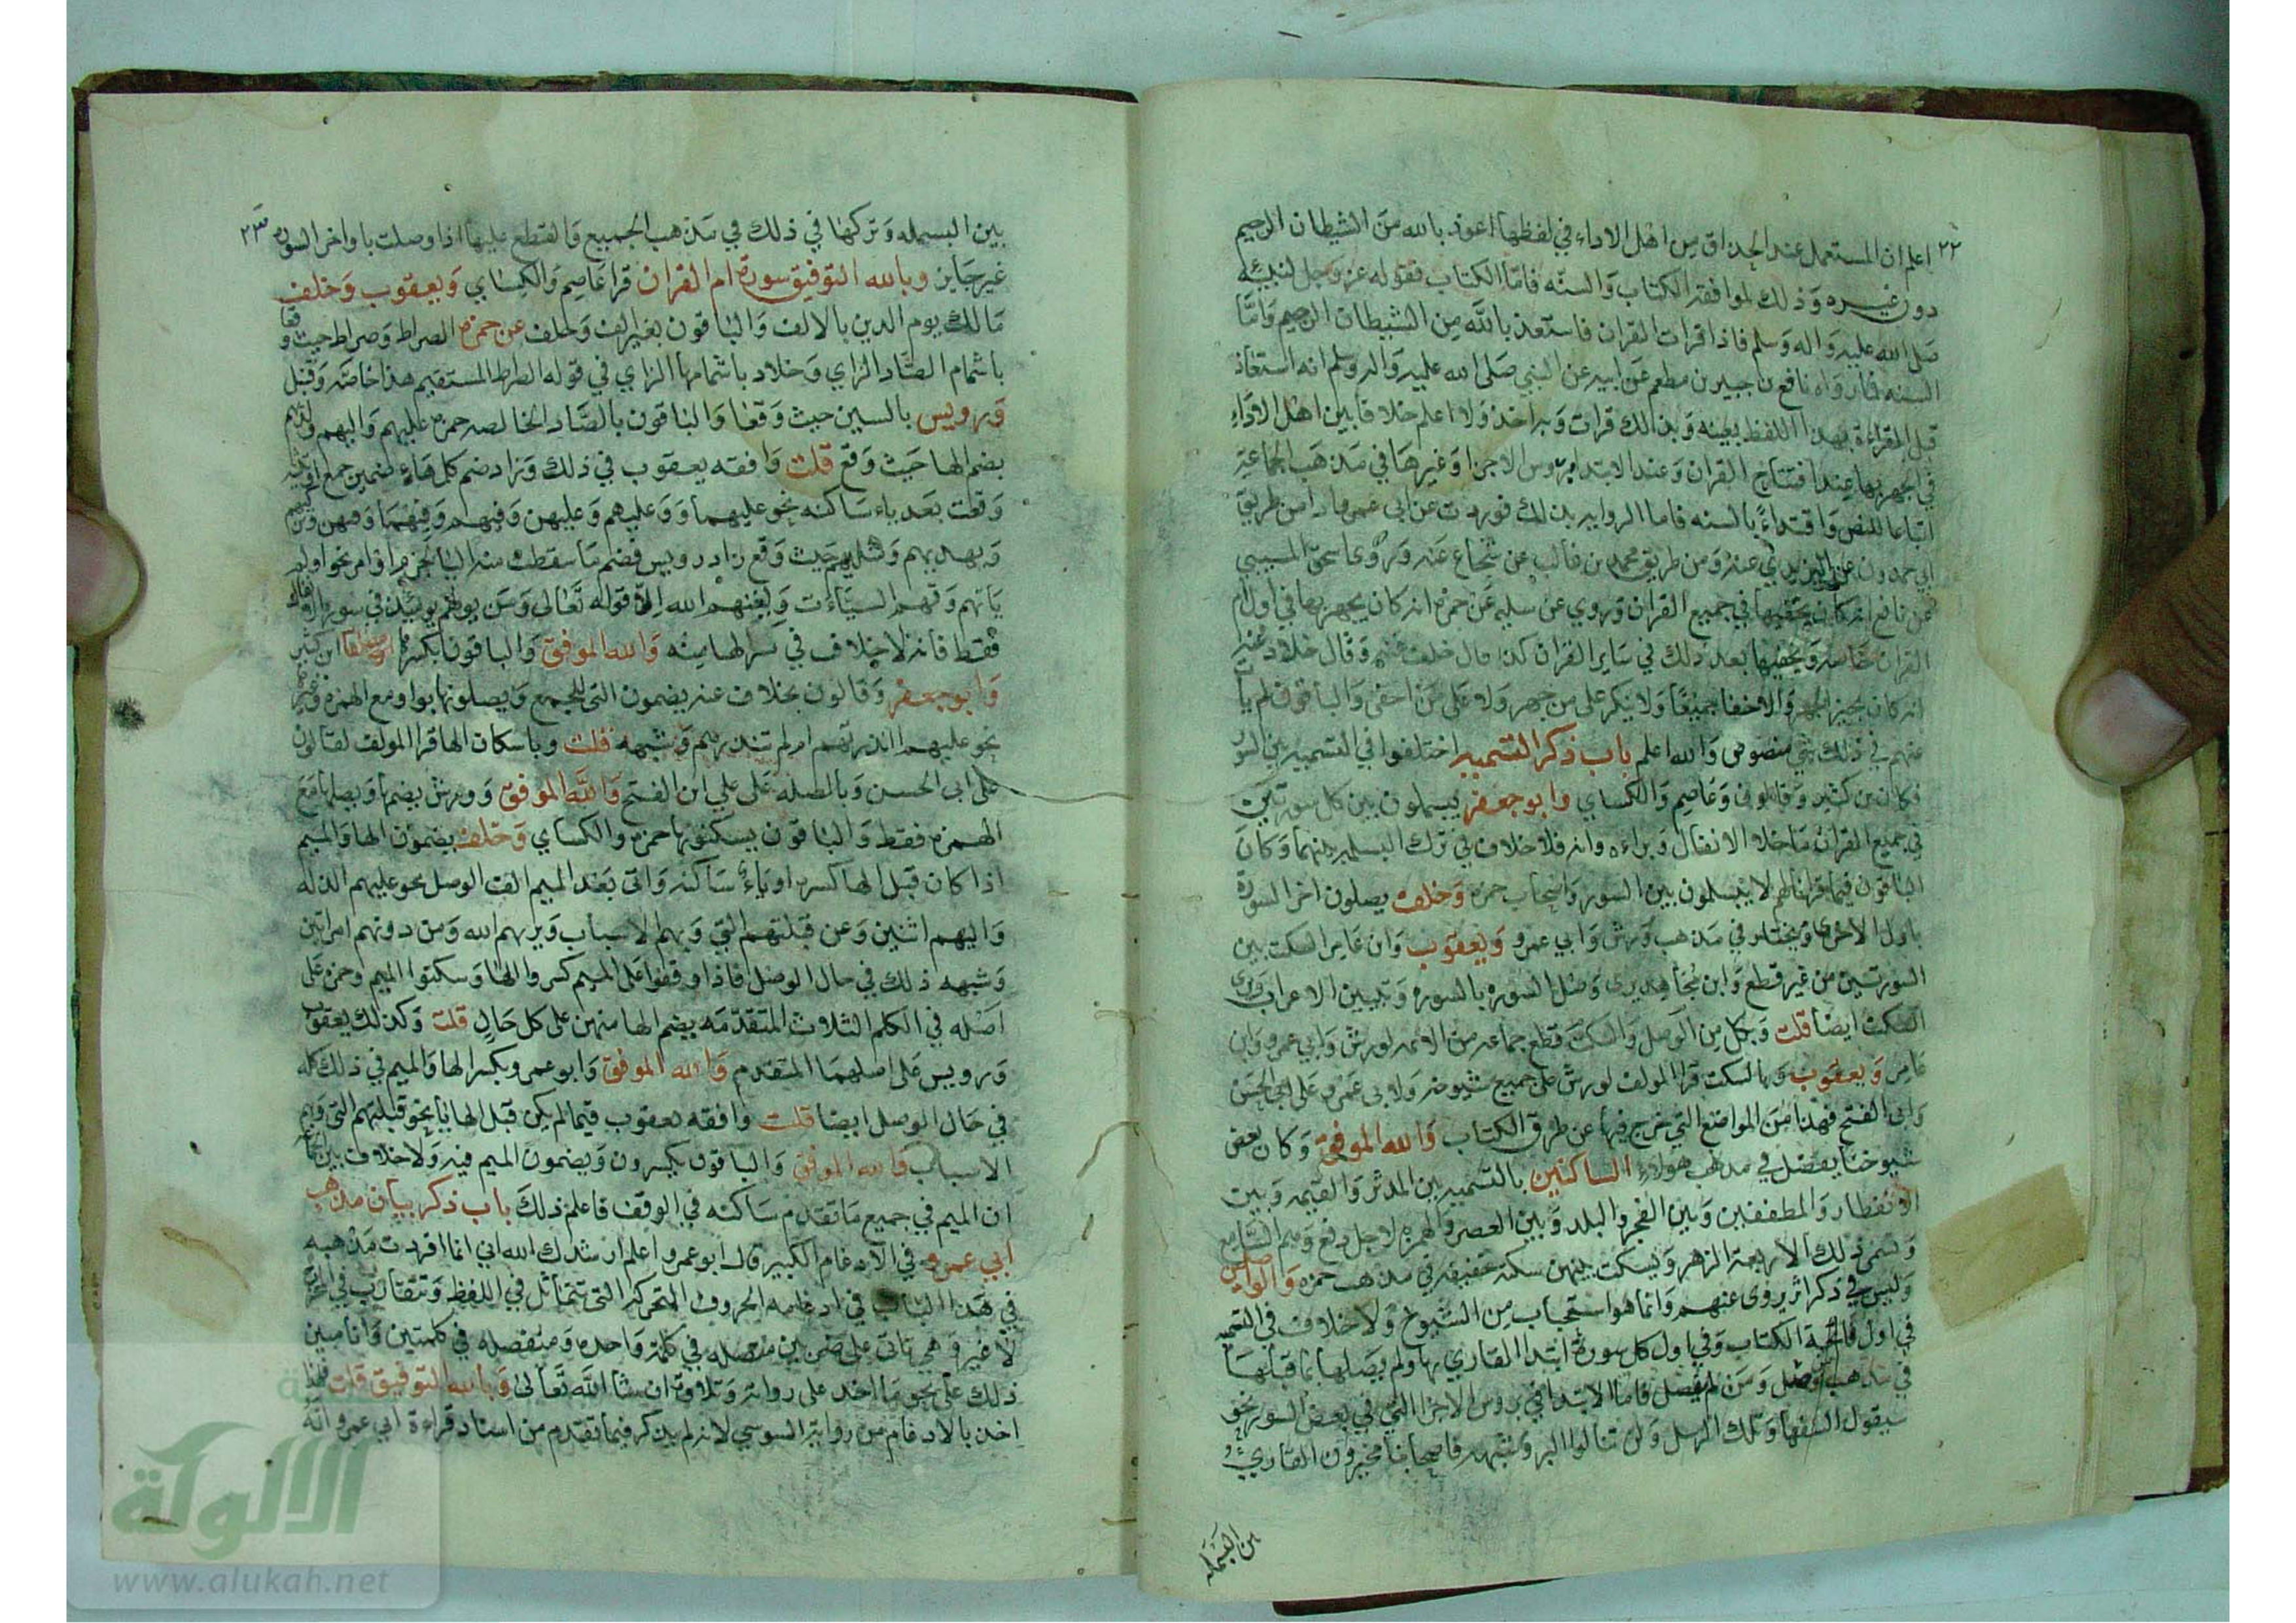 ٢٢
اعلم ان المستعمل عند الحذاق من اهل الاداء في لفظها اعوذ بالله من الشيطان الرجيم
دون غيره وذلك لموافقة الكتاب والسنه فاما الكتاب فقوله عز وجل لنبيه
صلى الله عليه واله وسلم فاذا قرات القران فاستعذ بالله من الشيطان الرجيم واما
السنه فما رواه نافع بن جبير بن مطعم عن ابيه عن النبي صلى الله عليه واله وسلم انه استعاذ
قبل القراءة بهذا اللفظ بعينه وبذلك قرات وبه اخذ ولا اعلم خلافا بين اهل الاداء
في الجهر بها عند افتتاح القران وعند الابتدا بروس الاجزا وغيرها في مذهب الجماعة
اتباعا للنص واقتداء بالسنه فاما الروايه بذلك فوردت عن ابي عمرو اداء من طريق
ابي حمدون عن اليزيدي عنه ومن طريق محمد بن غالب عن شجاع عنه وروى اسحق المسيبي
عن نافع انه كان يخفيها في جميع القران وروي عن سليم عن حمزه انه كان يجهر بها في اول ام
القران خاصه ويخفيها بعد ذلك في ساير القران كذا قال خلف عنه وقال خلاد عنه
انه كان يجيز الجهر والاخفا جميعا ولا ينكر على من جهر ولا على من اخفى والباقون لم يات
عنهم في ذلك شي منصوص والله اعلم باب ذكر التسميه اختلفوا في التسميه بين السور
فكان بن كثير وقالون وعاصم والكساي وابو جعفر يبسملون بين كل سورتين
في جميع القران ما خلا الانفال وبراءه وانه فلا خلاف في ترك البسمله بينهما وكان
الباقون فيما قرانا لهم لا يبسملون بين السور واصحاب حمزه وخلف يصلون اخر السورة
باول الاخرى ويختار في مذهب ورش وابي عمرو ويعقوب وابن عامر السكت بين
السورتين من غير قطع وابن مجاهد يرى وصل السوره بالسوره وتبيين الاعراب ويرى
السكت ايضا قلت وبكل من الوصل والسكت قطع جماعه من الائمه لورش وابي عمرو وابن
عامر ويعقوب وبالسكت قرا المولف لورش على جميع شيوخه ولابي عمرو على ابي الحسن
وابي الفتح فهذا من المواضع التي خرج فيها عن طرق الكتاب والله الموفق وكان بعض
شيوخنا يفصل في مذهب هولاء الساكتين بالتسميه بين المدثر والقيمه وبين
الانفطار والمطففين وبين الفجر والبلد وبين العصر والهمزه لاجل دفع وهم السامع
وتسمى ذلك الاربعة الزهر ويسكت بينهن سكته خفيفه في مذهب حمزه والواصلين
وليس في ذكر اثر يروى عنهم وانما هو استحباب من الشيوخ ولا خلاف في التسميه
في اول فاتحة الكتاب وفي اول كل سورة ابتدا القاري بها ولم يصلها بما قبلها
في مذهب من فصل ومن لم يفصل فاما الابتدا في بروس الاجزا التي في بعض السور نحو
سيقول السفها وتلك الرسل ولن تنالوا البر وشبهه فاصحابنا مخيرون القاري
بين البسمله
٢٣
بين البسمله وتركها في ذلك في مذهب الجميع والقطع عليها اذا وصلت باواخر السوره
غير جايز وبالله التوفيق سورة ام القران قرا عاصم والكساي ويعقوب وخلف
مالك يوم الدين بالالف والباقون بغير الف وخلف عن حمزه الصراط وصراط حيث وقعا
باشمام الصاد الزاي وخلاد باشمامها الزاي في قوله الصراط المستقيم هذا خاصه وقنبل
ورويس بالسين حيث وقعا والباقون بالصاد الخالصه حمزه عليهم واليهم ولديهم
بضم الها حيث وقع قلت وافقه يعقوب في ذلك وزاد ضم كل هاء ضمير جمع او تثنيه
وقعت بعد ياء ساكنه نحو عليهما وعليهم وعليهن وفيهم وفيهما وفيهن
ويهديهم ومثليهم حيث وقع زاد رويس فضم ما سقطت منه اليا لجزم او امر نحو اولم
ياتهم وقهم السيئات ويغنهم الله الا قوله تعالى ومن يولهم يومئذ في سورة الانفال
فقط فانه لا خلاف في كسر الها منه والله الموفق والباقون بكسرها ابن كثير
وابو جعفر وقالون بخلاف عنه يضمون التي للجمع ويصلونها بواو مع الهمزه وغيرها
نحو عليهم اانذرتهم ام لم تنذرهم وشبهه قلت وباسكان الها قرا المولف لقالون
على ابي الحسن وبالصله على علي ابن الفتح والله الموفق وورش يضمها ويصلها مع
الهمزه فقط والباقون يسكنونها حمزه والكساي وخلف يضمون الها والميم
اذا كان قبل الها كسره او ياء ساكنه واتى بعد الميم الف الوصل نحو عليهم الذله
واليهم اثنين وعن قبلتهم التي وبهم الاسباب ويريهم الله ومن دونهم امراتين
وشبهه ذلك في حال الوصل فاذا وقفوا على الميم كسروا الها وسكنوا الميم وحمزه على
اصله في الكلم الثلاث المتقدمه بضم الها منهن على كل حال قلت وكذلك يعقوب
ورويس على اصلهما المتقدم والله الموفق وابو عمرو بكسر الها والميم في ذلك كله
في حال الوصل ايضا قلت وافقه يعقوب فيما لم يكن قبل الها يا نحو قبلتهم التي وبهم
الاسباب والله الموفق والباقون بكسرون ويضمون الميم فيه ولا خلاف بين الجماعه
ان الميم في جميع ما تقدم ساكنه في الوقف فاعلم ذلك باب ذكر بيان مذهب
ابي عمرو في الادغام الكبير قال ابو عمرو اعلم ارشدك الله اني انما افردت مذهبه
في هذا الباب في ادغامه الحروف المتحركه التي تتماثل في اللفظ وتتقارب في المخرج
لا غير وهي تاتي على ضربين متصله في كلمة واحده ومنفصله في كلمتين وانا مبين
ذلك على نحو ما اخذ على روايه وتلاوة ان شا الله تعالى وبالله التوفيق قلت
اخذ بالادغام من رواية السوسي لانه لم يذكر فيما تقدم من اسناد قراءة ابي عمرو انه
الالوكة
www.alukah.net